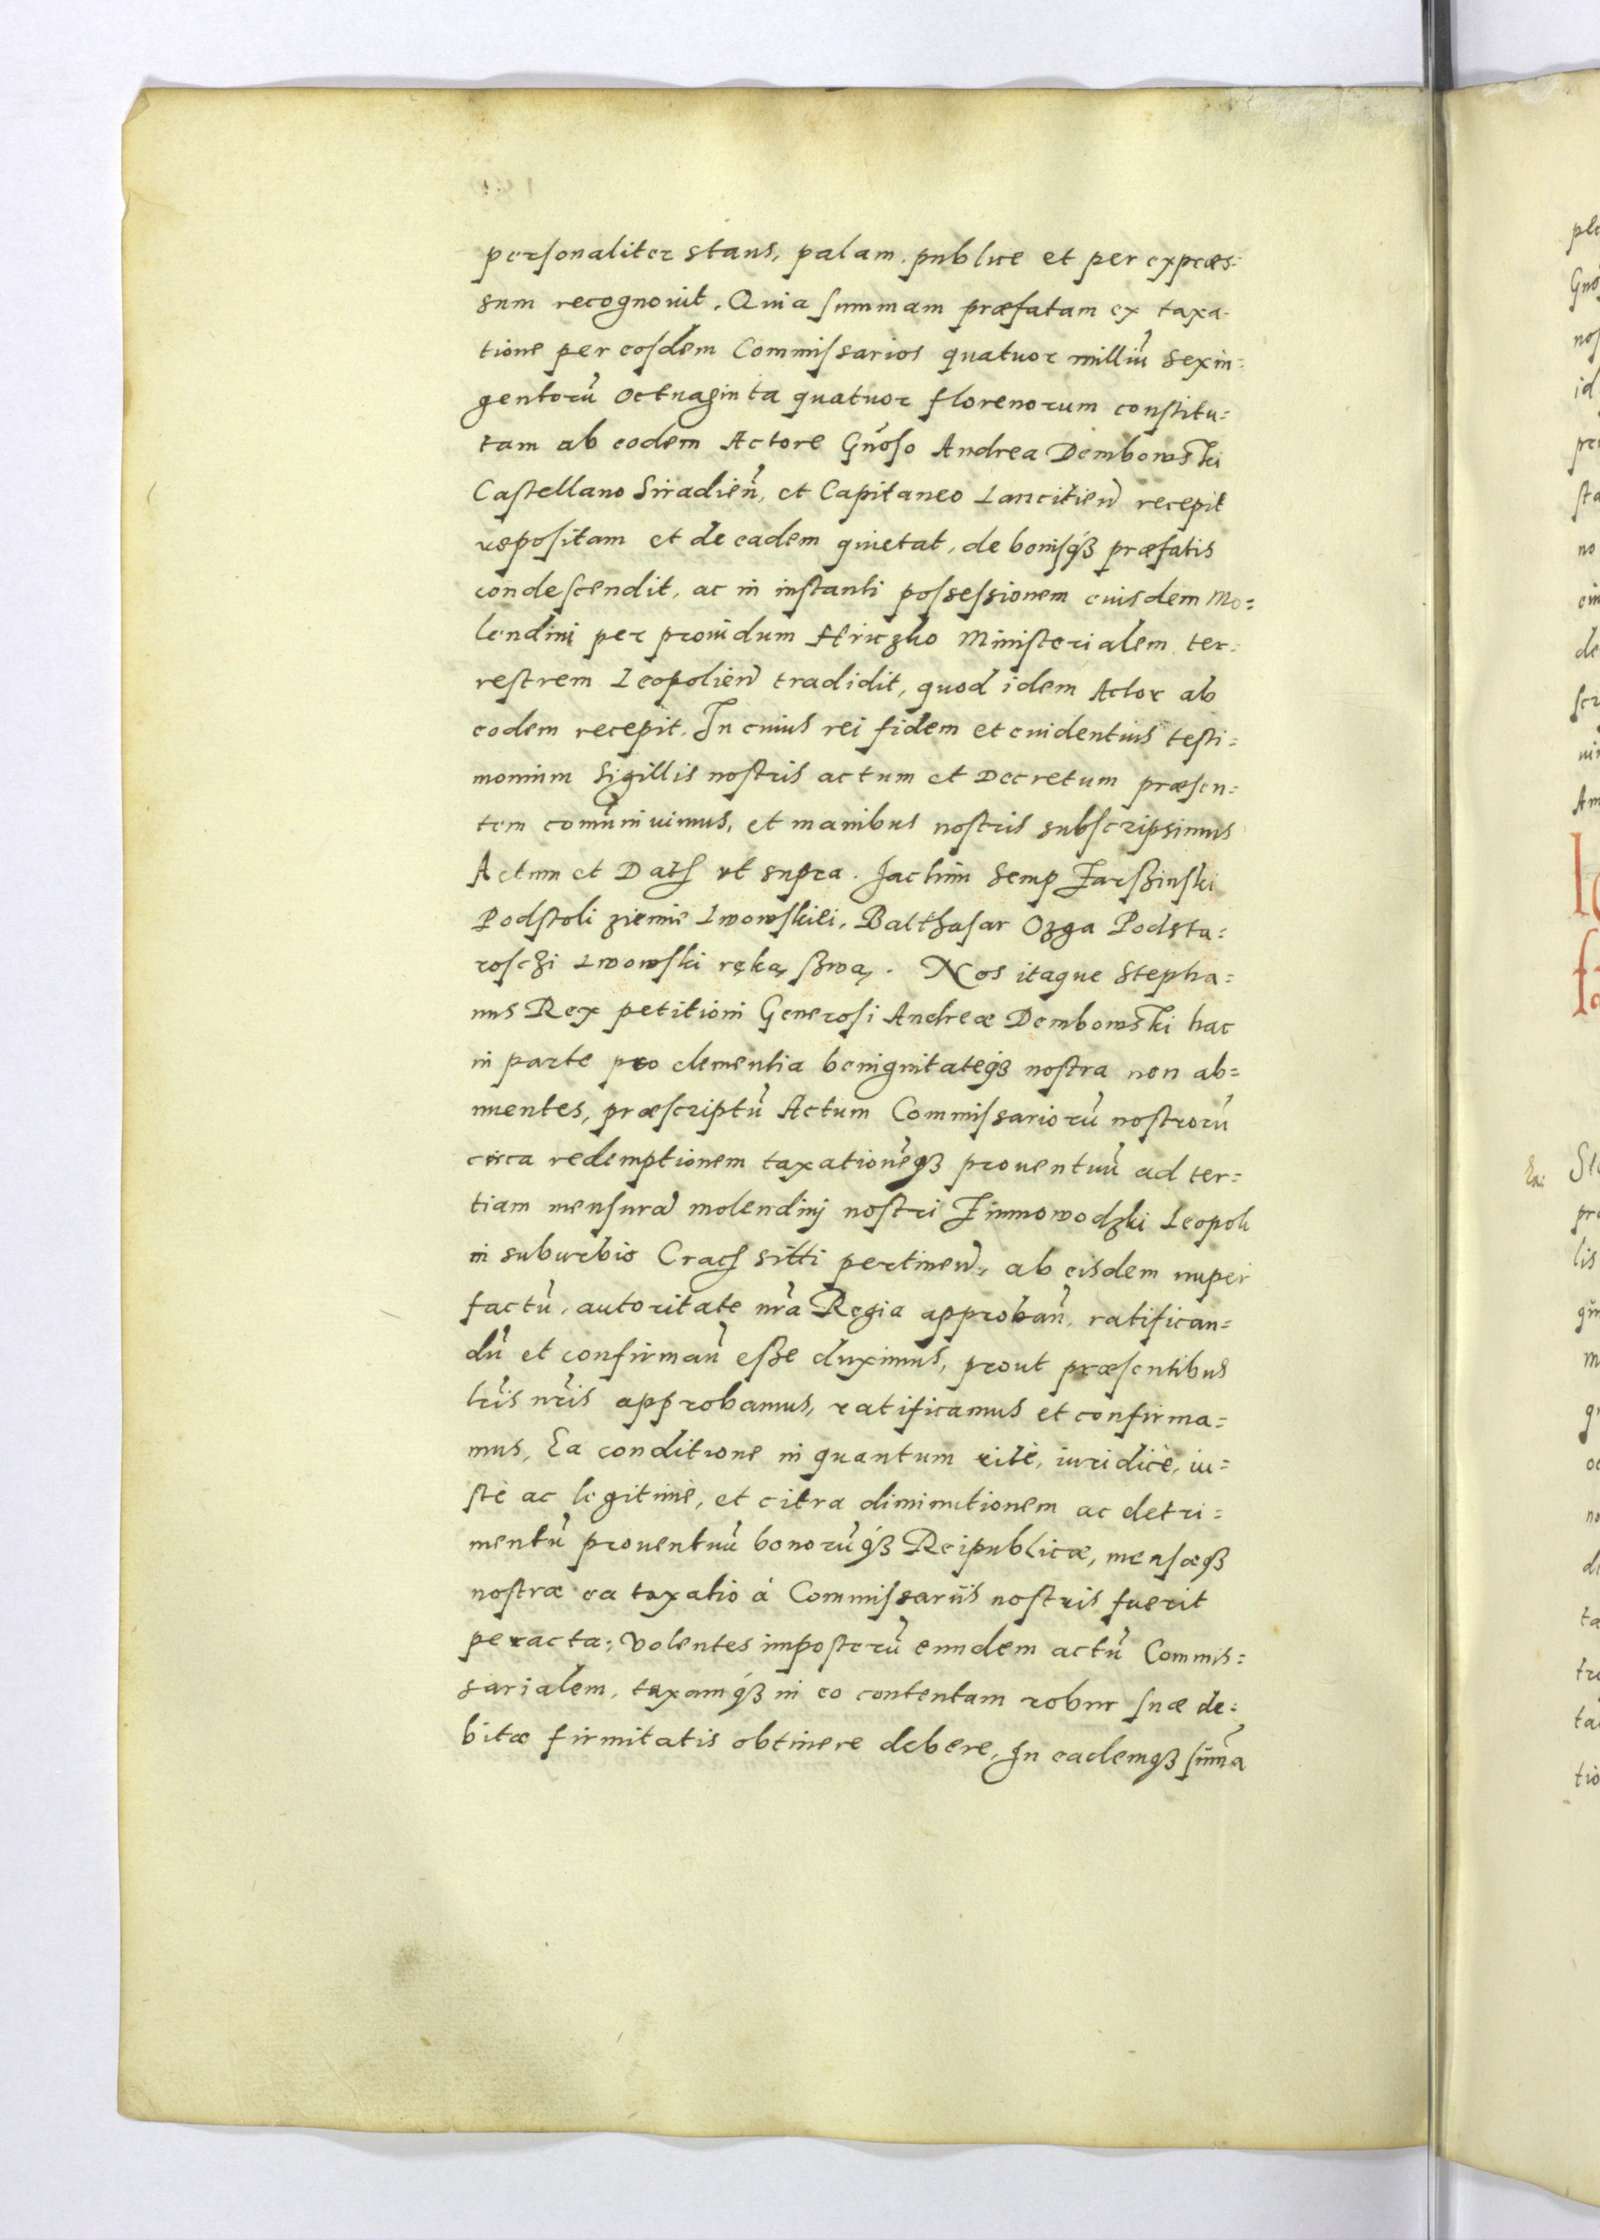 personaliter stans, palam, publice et per expræs-
sum recognovit. Quia summam præfatam ex taxa-
tione per eosdem Commissarios quatuor milliũ sexin-
gentorũ octuaginta quatuor florenorum constitu-
tam ab eodem Actore Gñoso Andrea Dembowski
Castellano Siradieñ, et Capitaneo Lancitieñ recepit
repositam et de eadem quietat, de bonisqȝ præfatis
condescendit, ac in instanti possessionem eiusdem Mo-
lendini per providum Hriczko Ministerialem ter-
restrem Leopolieñ tradidit, quod idem Actor ab
eodem recepit. In cuius rei fidem et euidentius testi-
monium Sigillis nostris actum et Decretum præsen-
tem com̃uniuimus, et manibus nostris subscripsimus
Actum et Datȝ ut supra. Jachim Semp Jarßinski
Podstoli ziemie Lwowskiei, Balthasar Ozga Podsta-
rosczi Lwowski ręką ßwą. Nos itaque Stepha-
nus Rex petitioni Generosi Andreæ Dembowski hac
in parte pro clementia benignitateqȝ nostra non ab-
nuentes, præscriptũ Actum Commissariorũ nostrorũ
circa redemptionem taxationẽqȝ prouentuũ ad ter-
tiam mensurã molendinj nostri Zimnowodzki Leopoli
in suburbio Cracȝ sitti pertineñ, ab eisdem nuper
factũ, autoritate nr̃a Regia approbañ, ratifican-
dũ et confirmañ eße duximus, prout præsentibus
lr̃is nr̃is approbamus, ratificamus et confirma-
mus, Ea conditione in quantum ritè, iuridicè, iu-
stè ac legitimè, et citra diminutionem ac detri-
mentũ prouentuũ bonorũqȝ Reipublicæ, mensæqȝ
nostræ ea taxatio á Commissariis nostris fuerit
peracta; Volentes imposterũ eundem actũ Commis-
sarialem, taxamqȝ in eo contentam robur suæ de-
bitæ firmitatis obtinere debere, In eademqȝ sum̃a